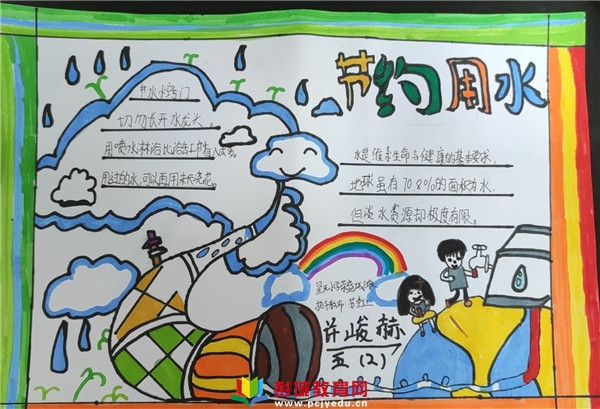 节约用水
节水小窍门
切勿长开水龙头。
用喷水淋浴比浴缸节省
用过的水,可以再用来浇花。
水是维系生命与健康的基本要求,
地球虽有70.8%的面积为水,
但淡水资源却极度有限。
许峻赫
五(2)
彭城教育网
www.pcjyedu.cn